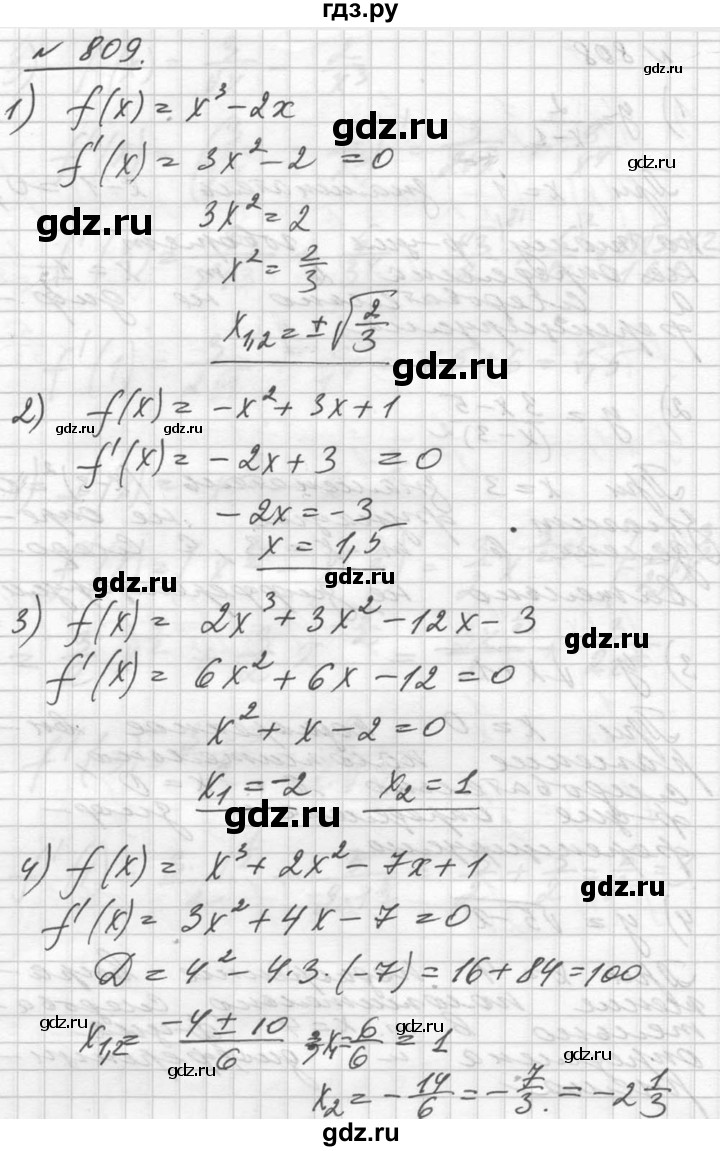 гдз.ру
№ 809.
1) f(x) = x³ - 2x
gdz.ru
gdz.ru
f'(x) = 3x² - 2 = 0
gdz.ru
3x² = 2
gdz.ru
x² = 2/3
x₁,₂ = ± √(2/3)
gdz.ru
2) f(x) = -x² + 3x + 1
gdz.ru
gdz.ru
f'(x) = -2x + 3 = 0
-2x = -3
x = 1,5
gdz.ru
gdz.ru
3) f(x) = 2x³ + 3x² - 12x - 3
gdz.ru
f'(x) = 6x² + 6x - 12 = 0
x² + x - 2 = 0
x₁ = -2 x₂ = 1
gdz.ru
4) f(x) = x³ + 2x² - 7x + 1
gdz.ru
f'(x) = 3x² + 4x - 7 = 0
D = 4² - 4·3·(-7) = 16 + 84 = 100
gdz.ru
gdz.ru
x₁,₂ = (-4 ± 10)/6 x₁ = 6/6 = 1
gdz.ru
gdz.ru
x₂ = -14/6 = -7/3 = -2 1/3
gdz.ru